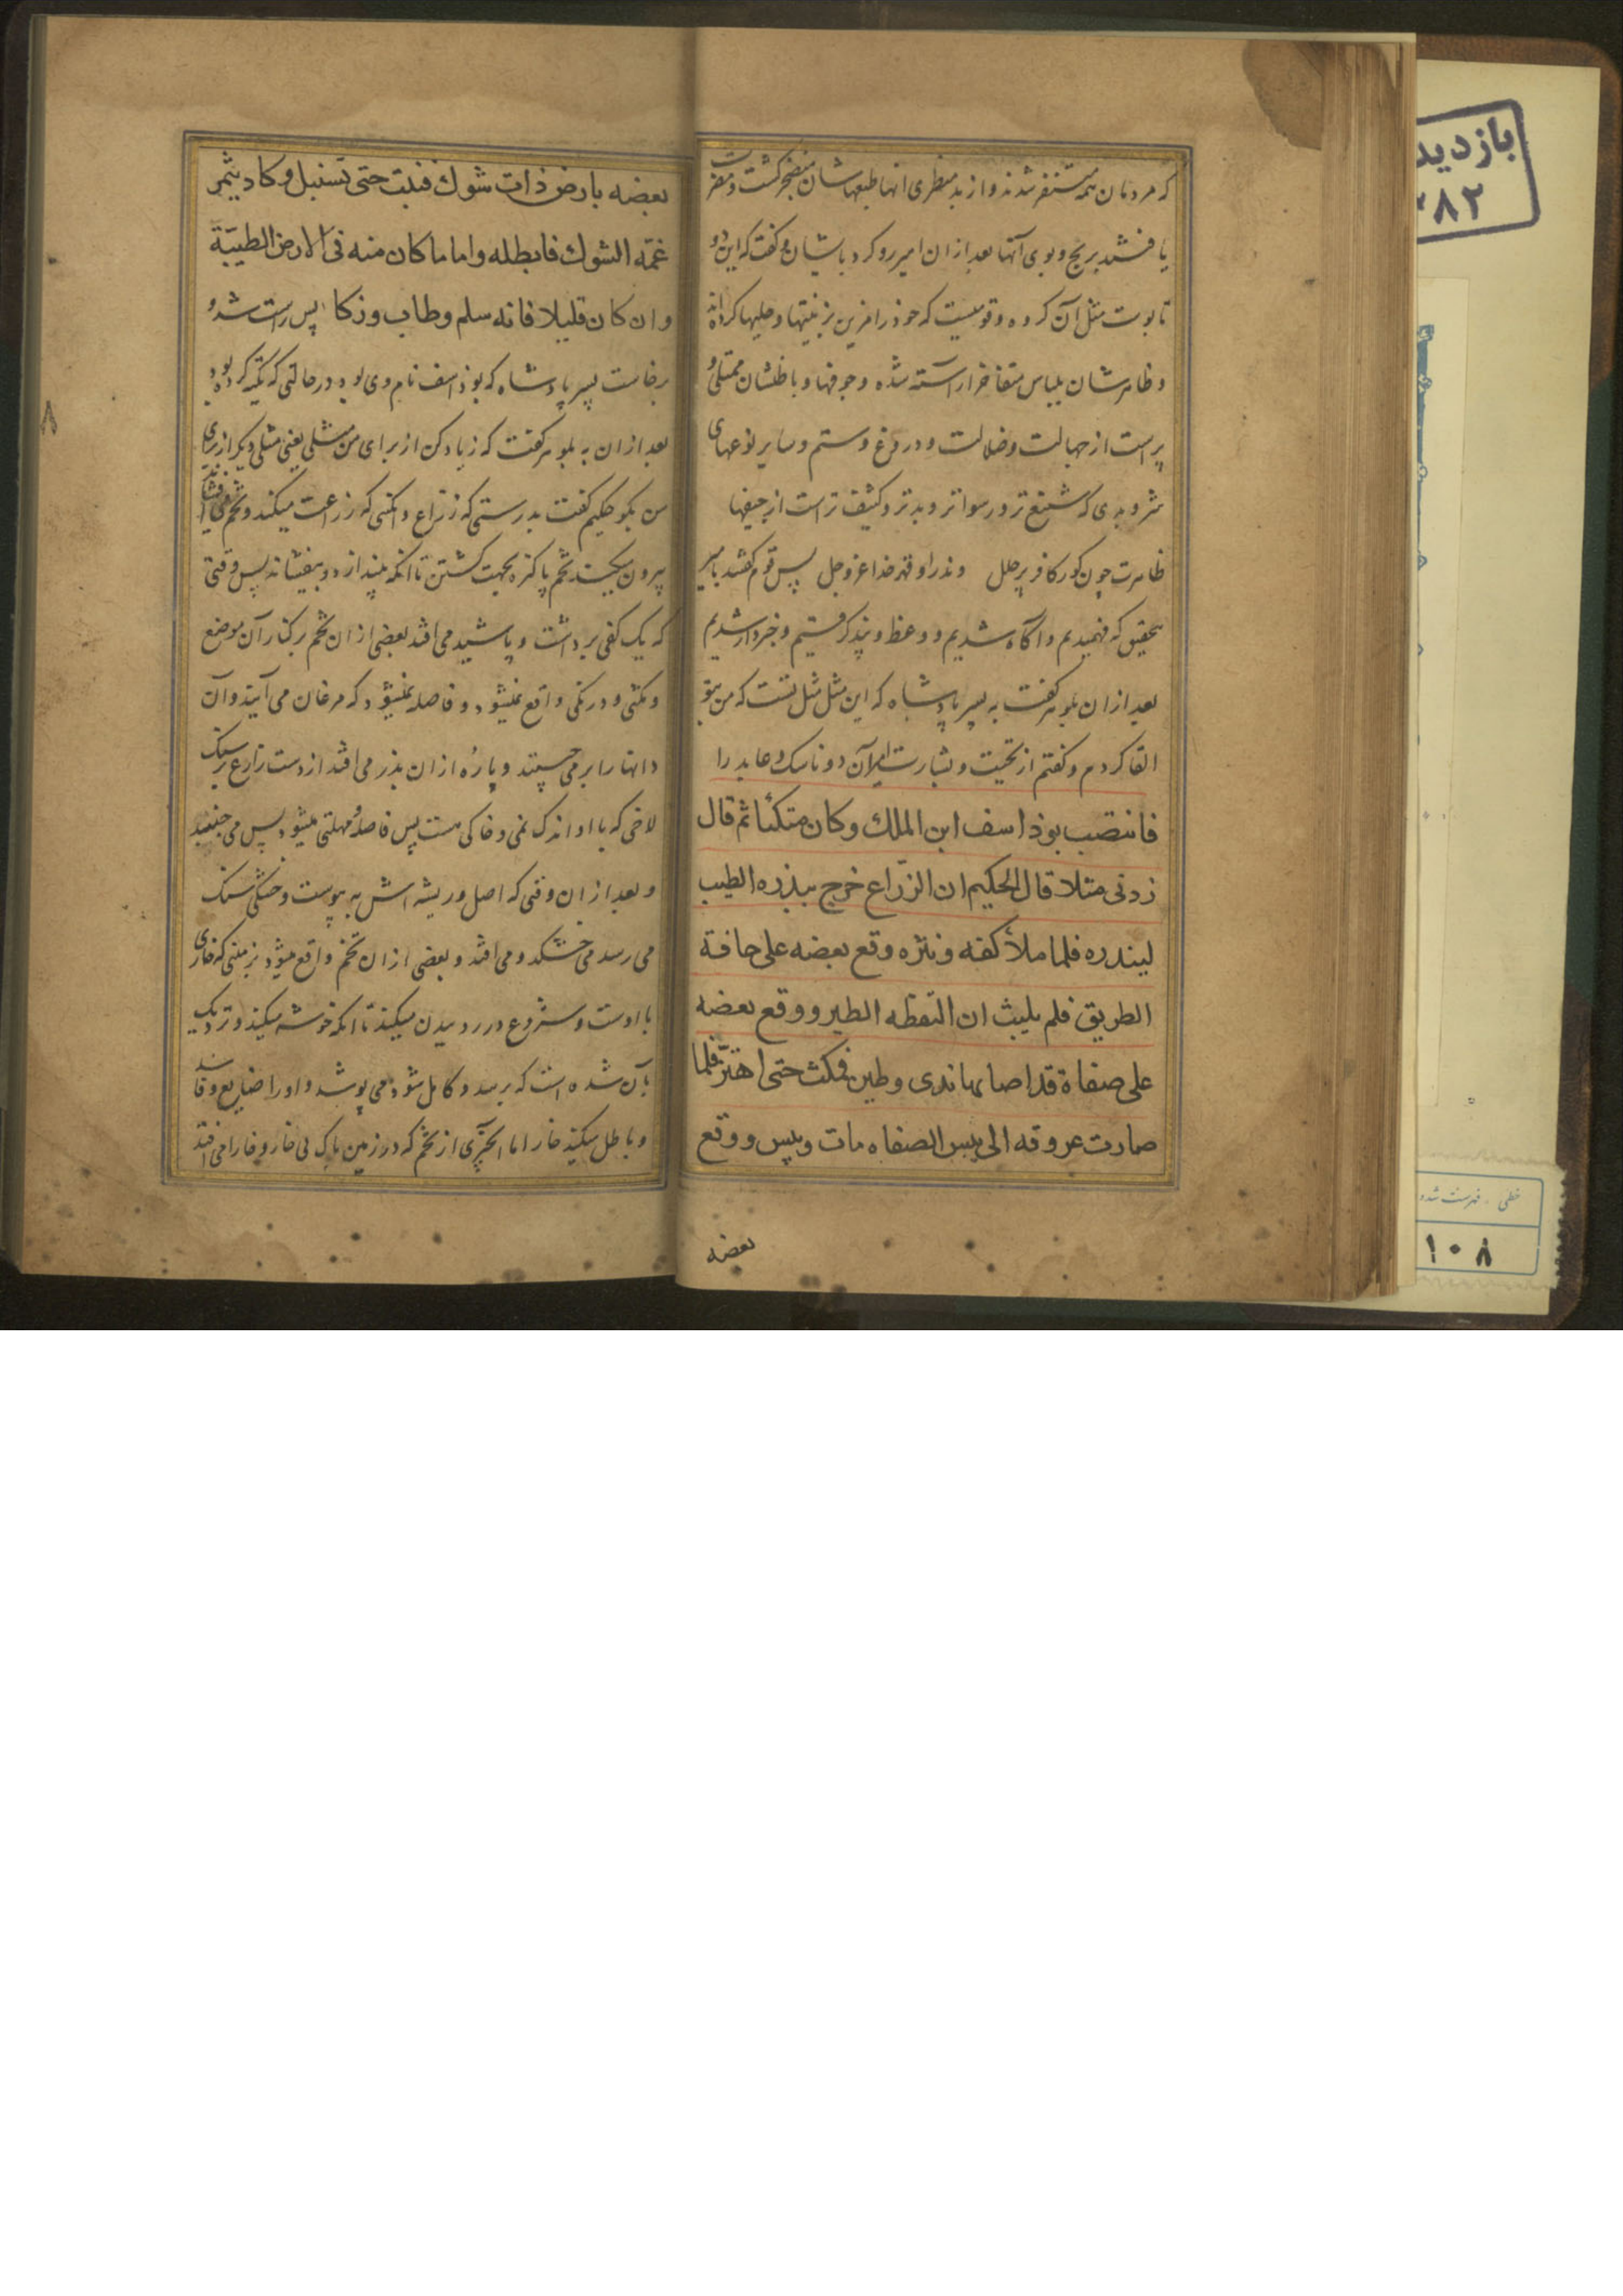 که مردمان همه متنفر شدند و از بد منظری انها طبعهاشان منضجر کشت و مضرت
یافتند بریح و بوی آنها بعد از ان امیر رو کرد باشیان و کفت که این دو
تابوت مثل آن کروه و قومیست که خود را مزین بزینتها و حلیها کرده اند
و ظاهرشان بلباس مفاخر اراسته شده و جوفها و باطنشان ممتلی و
پر است از جهالت و ضلالت و دروغ و ستم و سایر نوعهای
شر و بدی که شنیع تر و رسواتر و بدتر و کثیف تر است از جیفها
ظاهرت چون کور کافر پر حلل وندر او قهر خدا عز و جل پس قوم کفتند بامیر
بتحقیق که فهمیدیم و آکاه شدیم و وعظ و پند کرفتیم و خبردار شدیم
بعد از ان بلوهر کفت به پسر پادشاه که این مثل مثل تست که من بتو
القا کردم و کفتم از تحیت و بشارت آن دو ناسک و عابد را
فانتصب بوذاسف ابن الملك وكان متكئا ثم قال
زدنی مثلا قال الحکیم ان الزراع خرج ببذره الطیب
لیبذره فلما ملأ کفه ونثره وقع بعضه علی حافة
الطریق فلم یلبث ان التقطه الطیر ووقع بعضه
علی صفاة قد اصابها ندی وطین فمکث حتی اهتزّ فلما
صارت عروقه الی یبس الصفاه مات ویبس ووقع
بعضه
بعضه بارض ذات شوك فنبت حتی تسنبل وکاد یثمر
غمّه الشوك فابطله واما ما کان منه فی الارض الطیّبة
وان کان قلیلا فانه سلم وطاب وزکا پس راست شد و
برخاست پسر پادشاه که بوذاسف نام وی بود در حالتی که تکیه کرده بود
بعد از ان به بلوهر کفت که زیاد کن از برای من مثلی یعنی مثلی دیکر از برای
من بکو حکیم کفت بدرستی که زراع و انکسی که زراعت میکند و تخم می افشاند
بیرون تخم پاکیزه بجهت کشتن تا انکه بیندازد و بیفشاند پس وقتی
که یک کفی برداشت و پاشید می افتد بعضی از ان تخم بر کنار آن موضع
و مکثی و درنکی واقع نمیشود و فاصله نمیشود که مرغان می آیند و آن
دانها را برمی چینند و پارهٔ از ان بذر می افتد از دست زارع بر سنک
لاخی که با او اندک نمی و خاکی هست پس فاصله و مهلتی میشود پس می جنبد
و بعد از ان وقتی که اصل و ریشه اش به یبوست و خشکی سنک
می رسد می خشکد و می افتد و بعضی از ان تخم واقع میشود بزمینی که خاری
با اوست و شروع در رویدن میکند تا انکه خوشه میکند و نزدیک
بآن شده است که برسد و کامل شود می پوشد و او را ضایع و فاسد
و باطل میکند خار اما انچیزی از تخم که در زمین پاک بی خار و خارا می افتد
۸
بازدید
۳۸۲
خطی - فهرست شده
۱۰۸